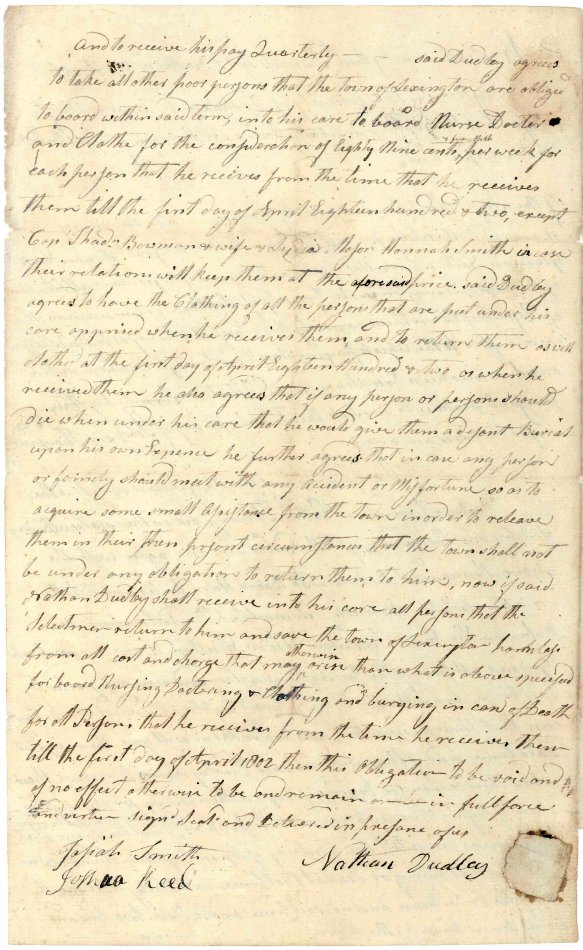 and to receive his pay Quarterly — said Dudley agrees
to take all other poor persons that the town of Lexington are obliged
to board within said term, into his care to board Nurse Docter
and Clothe for the consideration of Eighty Nine cents, per week for
each person that he recives from the time that he receives
them till the first day of April Eighteen hundred & two, except
Cap Thad Bowman & wife & Lydia Hannah Smith in case
their relations will keep them at the aforesaid price. said Dudley
agrees to have the Clothing of all the persons that are put under his
care apprised when he receives them, and to return them as well
clothd at the first day of April Eighteen Hundred & two as when he
received them he also agrees that if any person or persons should
die when under his care that he would give them a desent Burial
upon his own Expence he further agrees that in case any person
or family should meet with any accident or Misfortune so as to
require some small Asistance from the town in order to releave
them in their then prsent circumstances that the town shall not
be under any obligation to return them to him, now if said
Nathan Dudley shall receive into his care all persons that the
Selectmen return to him and save the town of Lexington harmless
from all cost and charge that may otherwise arise than what is above specified
for board Nursing Doctering & Clothing and burying in case of Death
for all Persons that he receives from the time he receives them
till the first day of April 1802 then this Obligation to be void and
of no effect otherwise to be and remain in full force
and vertue Signd Seald and Delivered in presance of us
Josiah Smith Nathan Dudley
Joshua Reed